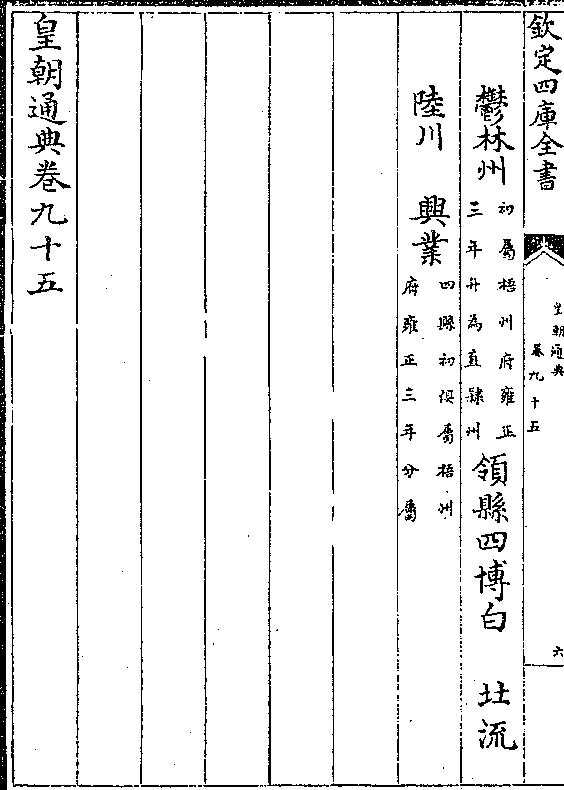 欽定四庫全書
皇朝通典
卷九十五
六
鬱林州初屬梧州府雍正
三年升為直隸州領縣四博白 北流
陸川 興業四縣初俱屬梧州
府雍正三年分屬
皇朝通典卷九十五